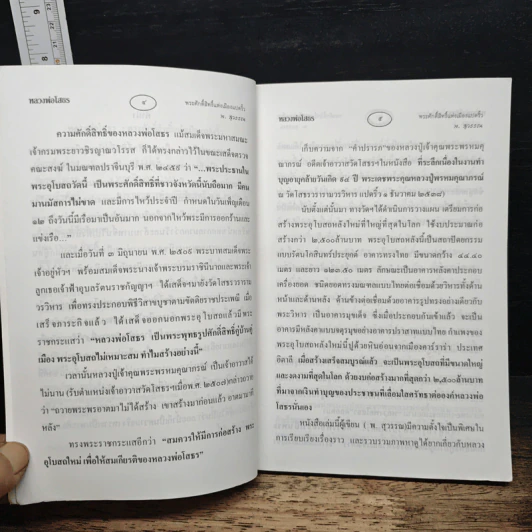 หลวงพ่อโสธร
๔
พระศักดิ์สิทธิ์แห่งเมืองแปดริ้ว
พ. สุวรรณ
ความศักดิ์สิทธิ์ของหลวงพ่อโสธร แม้สมเด็จพระมหาสมณ
เจ้ากรมพระยาวชิรญาณวโรรส ก็ได้ทรงกล่าวไว้ขณะเสด็จตรวจ
คณะสงฆ์ ในมณฑลปราจีนบุรี พ.ศ. ๒๔๕๙ ว่า "...พระประธานใน
พระอุโบสถวัดนี้ เป็นพระศักดิ์สิทธิ์ที่ชาวจังหวัดนี้นับถือมาก มีคน
มานมัสการไม่ขาด และมีการไหว้ประจำปี กำหนดในวันเพ็ญเดือน
๑๒ ถึงวันนี้มีเรือมาเป็นอันมาก นอกจากไหว้พระมีการออกร้านและ
แข่งเรือ..."
และเมื่อวันที่ ๓ มิถุนายน พ.ศ. ๒๕๐๙ พระบาทสมเด็จพระ
เจ้าอยู่หัวฯ พร้อมสมเด็จพระนางเจ้าพระบรมราชินีนาถและพระเจ้า
ลูกเธอเจ้าฟ้าอุบลรัตนราชกัญญาฯ ได้เสด็จมายังวัดโสธรวราราม
วรวิหาร เพื่อทรงประกอบพิธีวิสาขบูชาตามขัตติยราชประเพณี เมื่อ
เสร็จภาระกิจแล้ว ได้เสด็จออกนอกพระอุโบสถแล้วมีพระ
ราชกระแสว่า "หลวงพ่อโสธร เป็นพระพุทธรูปศักดิ์สิทธิ์คู่บ้านคู่
เมือง พระอุโบสถไม่เหมาะสม ทำไมสร้างอย่างนี้"
เวลานั้นหลวงปู่เจ้าคุณพระพรหมคุณาภรณ์ เป็นเจ้าอาวาสได้
ไม่นาน (รับตำแหน่งเจ้าอาวาสวัดโสธรฯเมื่อพ.ศ. ๒๕๐๗)กล่าวถวาย
ว่า "ถวายพระพรอาตมาไม่ได้สร้าง เขาสร้างมาก่อนแล้ว อาตมามาที
หลัง"
ทรงพระราชกระแสอีกว่า "สมควรให้มีการก่อสร้าง พระ
อุโบสถใหม่ เพื่อให้สมเกียรติของหลวงพ่อโสธร"
หลวงพ่อโสธร
๕
พระศักดิ์สิทธิ์แห่งเมืองแปดริ้ว
พ. สุวรรณ
เก็บความจาก "คำปรารภ"ของหลวงปู่เจ้าคุณพระพรหมคุ
ณาภรณ์ อดีตเจ้าอาวาสวัดโสธรฯในหนังสือ ที่ระลึกเนื่องในงานทำ
บุญอายุคล้ายวันเกิด ๙๔ ปี พระเดชพระคุณหลวงปู่พรหมคุณาภรณ์
ณ วัดโสธรวรารามวรวิหาร แปดริ้ว ๑ ธันวาคม ๒๕๓๘)
นับตั้งแต่นั้นมา ทางวัดฯได้ดำเนินการวางแผน เตรียมการก่อ
สร้างพระอุโบสถหลังใหม่ที่ใหญ่ที่สุดในโลก ใช้งบประมาณก่อ
สร้างกว่า ๒,๕๐๐ล้านบาท พระอุโบสถหลังนี้เป็นสถาปัตยกรรม
แบบรัตนโกสินทร์ประยุกต์ อาคารทรงไทย มีขนาดกว้าง ๔๔.๕๐
เมตร และยาว ๑๒๓.๕๐ เมตร ลักษณะเป็นอาคารหลังคาประกอบ
เครื่องยอด ชนิดยอดทรงมณฑปแบบไทยต่อเชื่อมด้วยวิหารทั้งด้าน
หน้าและด้านหลัง ด้านข้างต่อเชื่อมด้วยอาคารรูปทรงอย่างเดียวกับ
พระวิหาร เป็นอาคารมุขเด็จ ซึ่งเมื่อประกอบกันเข้าแล้ว จะเป็น
อาคารมีหลังคาแบบจตุรมุขอย่างอาคารปราสาทแบบไทย กำแพงของ
พระอุโบสถหลังใหม่นี้ปูด้วยหินอ่อนจากเมืองคาร์ราร่า ประเทศ
อิตาลี เมื่อสร้างเสร็จสมบูรณ์แล้ว จะเป็นพระอุโบสถที่มีขนาดใหญ่
และงดงามที่สุดในโลก ด้วยงบก่อสร้างมากที่สุดกว่า ๒,๕๐๐ล้านบาท
ที่มาจากเงินทำบุญของประชาชนที่เลื่อมใสศรัทธาต่อองค์หลวงพ่อ
โสธรนั่นเอง
หนังสือเล่มนี้ผู้เขียน ( พ. สุวรรณ)มีความตั้งใจเป็นพิเศษใน
การเรียบเรียงเรื่องราว และรวบรวมภาพหาดูได้ยากเกี่ยวกับหลวง